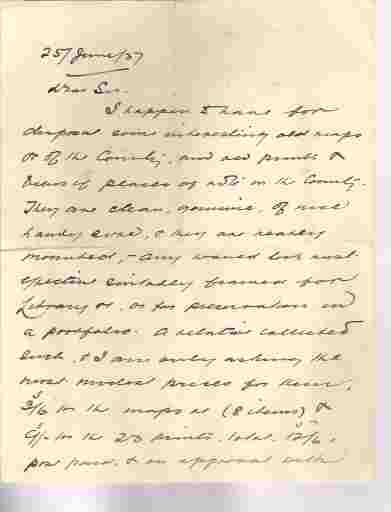 25/June/37
Dear Sir.
I happen to have for
disposal some interesting old maps
of the County, and old prints &
views of places of note in the County.
They are clean, genuine, of nice
handy size, & they are neatly
mounted, - any would look most
effective suitably framed for
Library or, or for preservation in
a portfolio. A relative collected
such, & I am only asking the
most modest prices for them,
3/6 for the maps et (8 items) &
for the 23 prints, total 12/6,
post paid, & on approval with